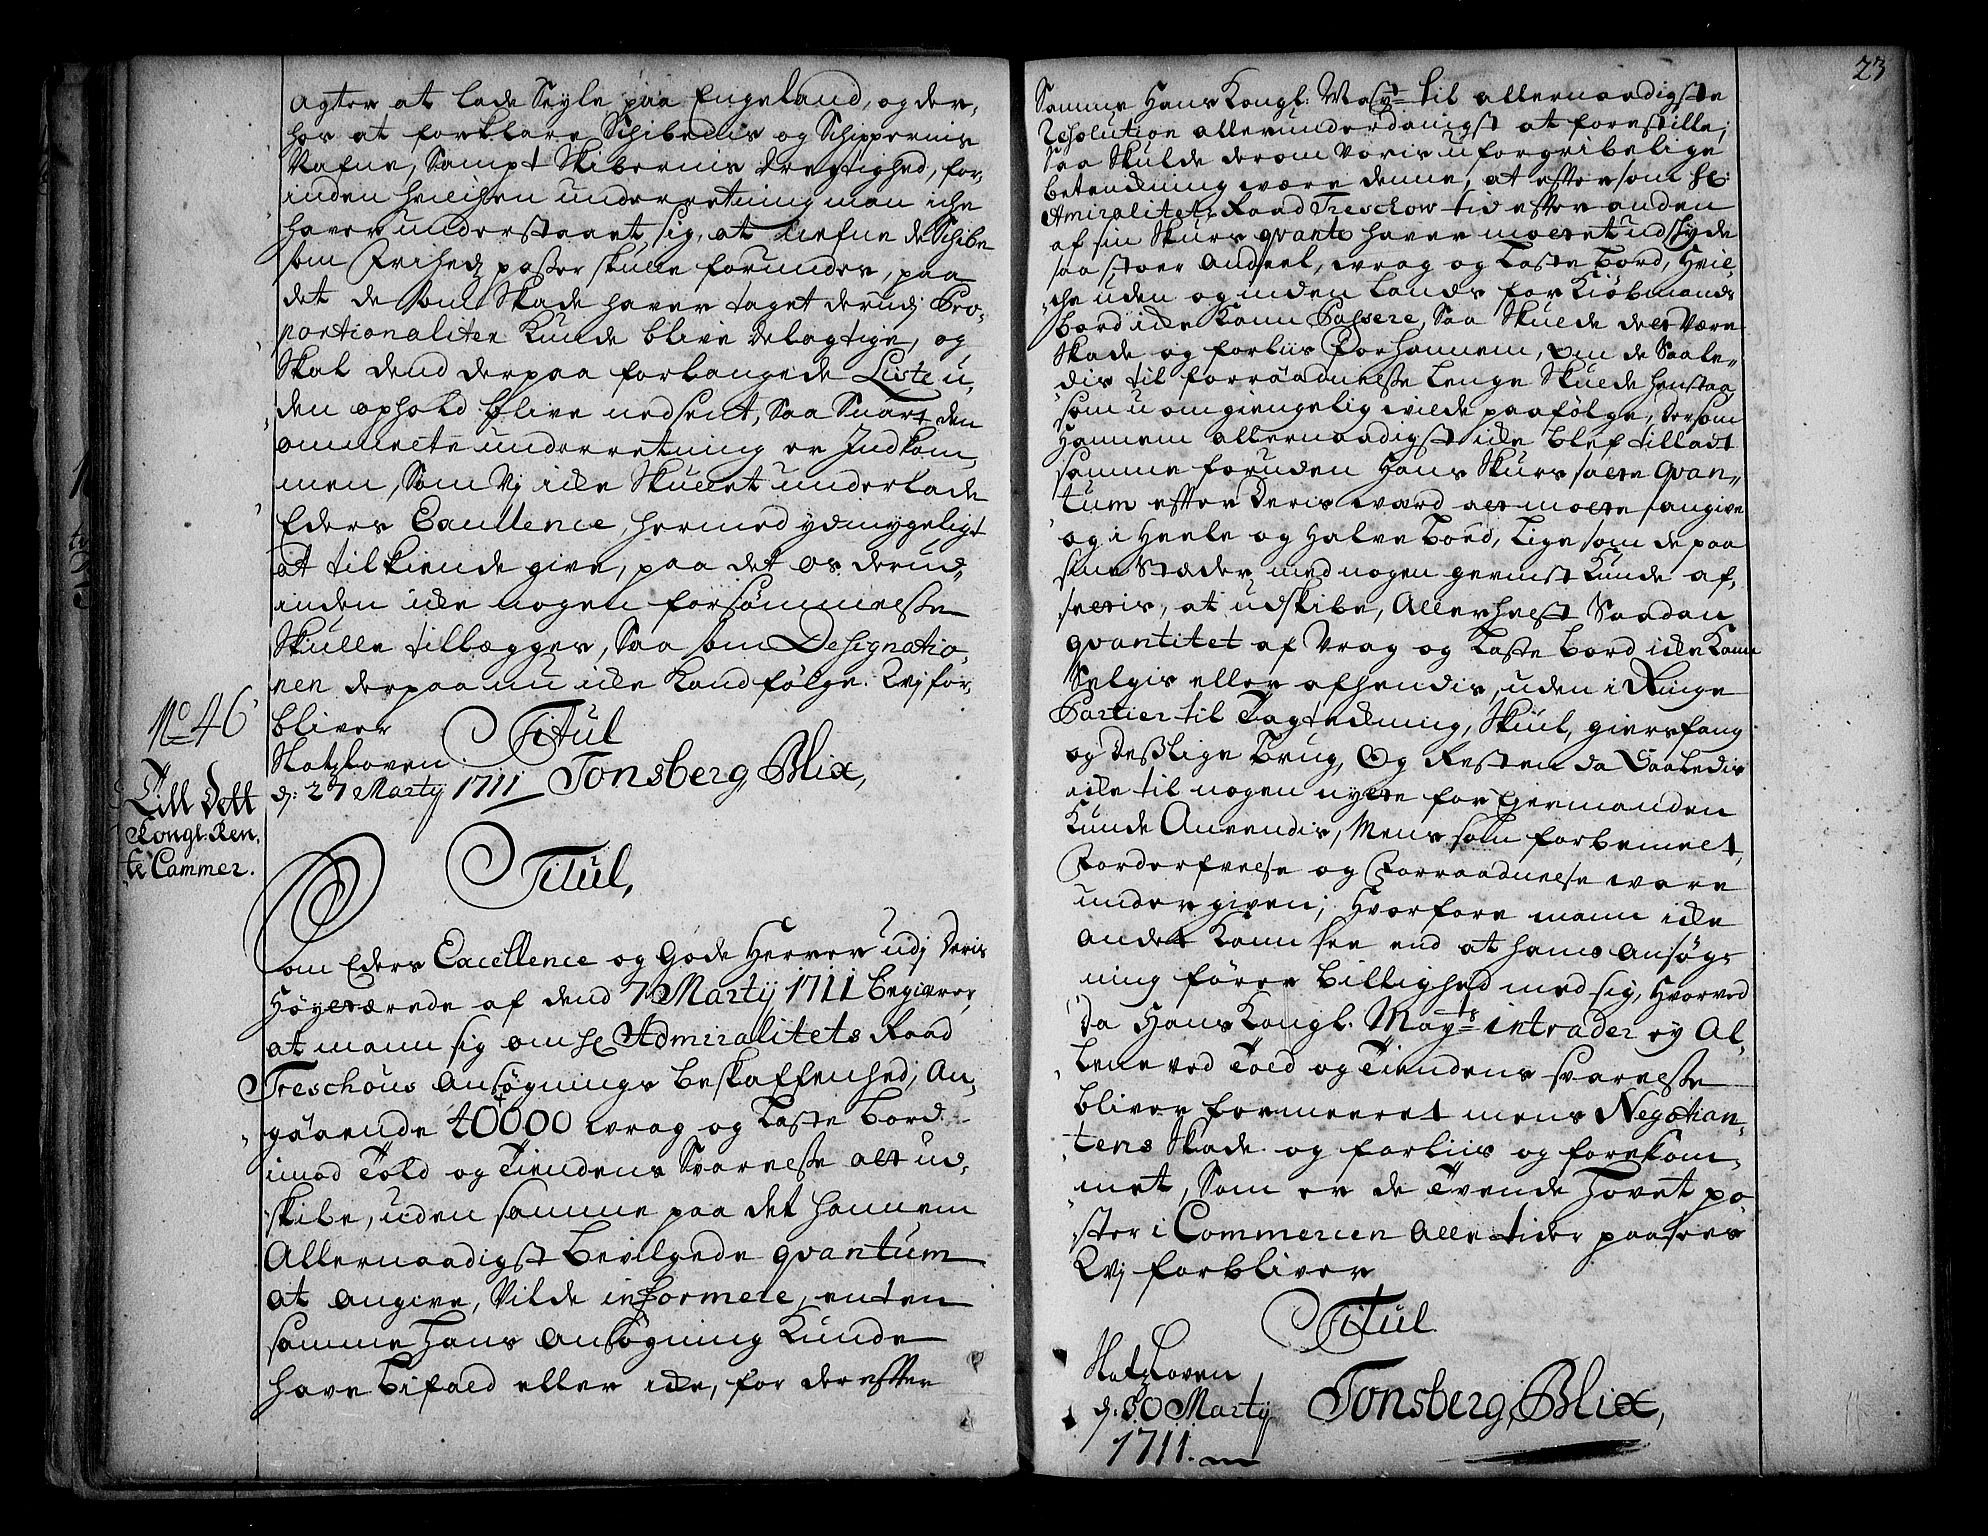 agter at lade Seyle paa Engeland, og der,
hos at forklare Schibenis og Schippernis
Nafne, Sampt Skibernis Dregtighed, for,
inden hvilchen underretning man iche
haver understaaet sig, at nefne de Schibe
som Friheds passer skulle forundes, paa
det de som Skade haver taget derudj Pro,
portionaliter Kunde blive delagtige, og
Skal dend derpaa forlangede Liste u,
den ophold blive nedsent, Saa Snart den
ommelte underretning er Indkom,
men, Som Vj icke Skullet underlade
Eders Excellence hermed ydmygeligst
at tilkiende give, paa det os derud,
inden icke nogen forsömmelsse
Skulle tillegges, Saa som Designatio,
nen derpaa nu icke Kand følge. Wj for,
bliver
Titul
No 46
Slotzloven
d: 27 Martij 1711
Tonsberg, Blix,
Till Dett
Kongl: Ren,
te Cammer.
Titul,
Som Eders Excellence og Gode Herrer udj Deris
Høyeværede af dend 7 Martij 1711 begierer,
at mann sig om hr Admiralitets Raad
Treschous Ansøgnings beskaffenhed, An,
gaaende 40000 wrag og Laste bord
imod Told og Tiendens Svarelsse att ud,
skibe, uden samme paa det hannem
Allernaadigst bevilgede qvantum
at angive, Vilde informere, enten
samme Hans Ansøgning Kunde
have bifald eller icke, for derefter
23
Samme Hans Kongl: Mayt: til allernaadigste
Resolution allerunderdanigst at forestille;
Saa Skulde derom Voris uforgribelige
betenckning være denne, at eftersom hr:
Amiralitets Raad Treschow tid efter anden
af sin Skurs qvanto haver moettet udskyde
saa stoer Andeel, wrag og Laste bord, Hvil,
che uden og inden Lands for Kiöbmands
bord icke Kann Passere, Saa Skulde det Være
Skade og forliis For hannem, om de Saale,
dis til forraadnelsse lenge Skulde henstaa,
som uomgiengelig wilde paafölge, dersom
Hannem allernaadigst icke blef tilladt
samme foruden Hans Skurs satte Qvan,
tum efter Deris værd att motte angive
og i Heele og Halve bord, Lige som de paa
sine Stæder med nogen gevinst Kunde af,
settis, at udskibe, Allerhelst Saadan
qvantitet af Vrag og Laste bord icke Kann
Selgis eller afhendis, uden i Ringe
Partier til Tagteckning, Skiul, giersfang
og desslige brug, Og Resten da Saaledis
icke til nogen nytte for Eyermanden
Kunde Anvendis, Mens som forbemelt,
Forderfvelse og Forraadnelse ware
undergiven; Hvorfore mann icke
andet Kann see end at hans Ansøg,
ning förer billighed med sig, Hvorved
da Hans Kongl. Mayts: intrader ey Al,
lene ved Told og Tiendens svarelsse
bliver formeeret mens Negotian,
tens Skade og forliis og forekom,
met, Som er de Tvende Hovet po,
ster i Commercien Alle tider paasees
Wj forbliver
Titul
Slotzloven
d: 30 Martij
1711.
Tonsberg, Blix,